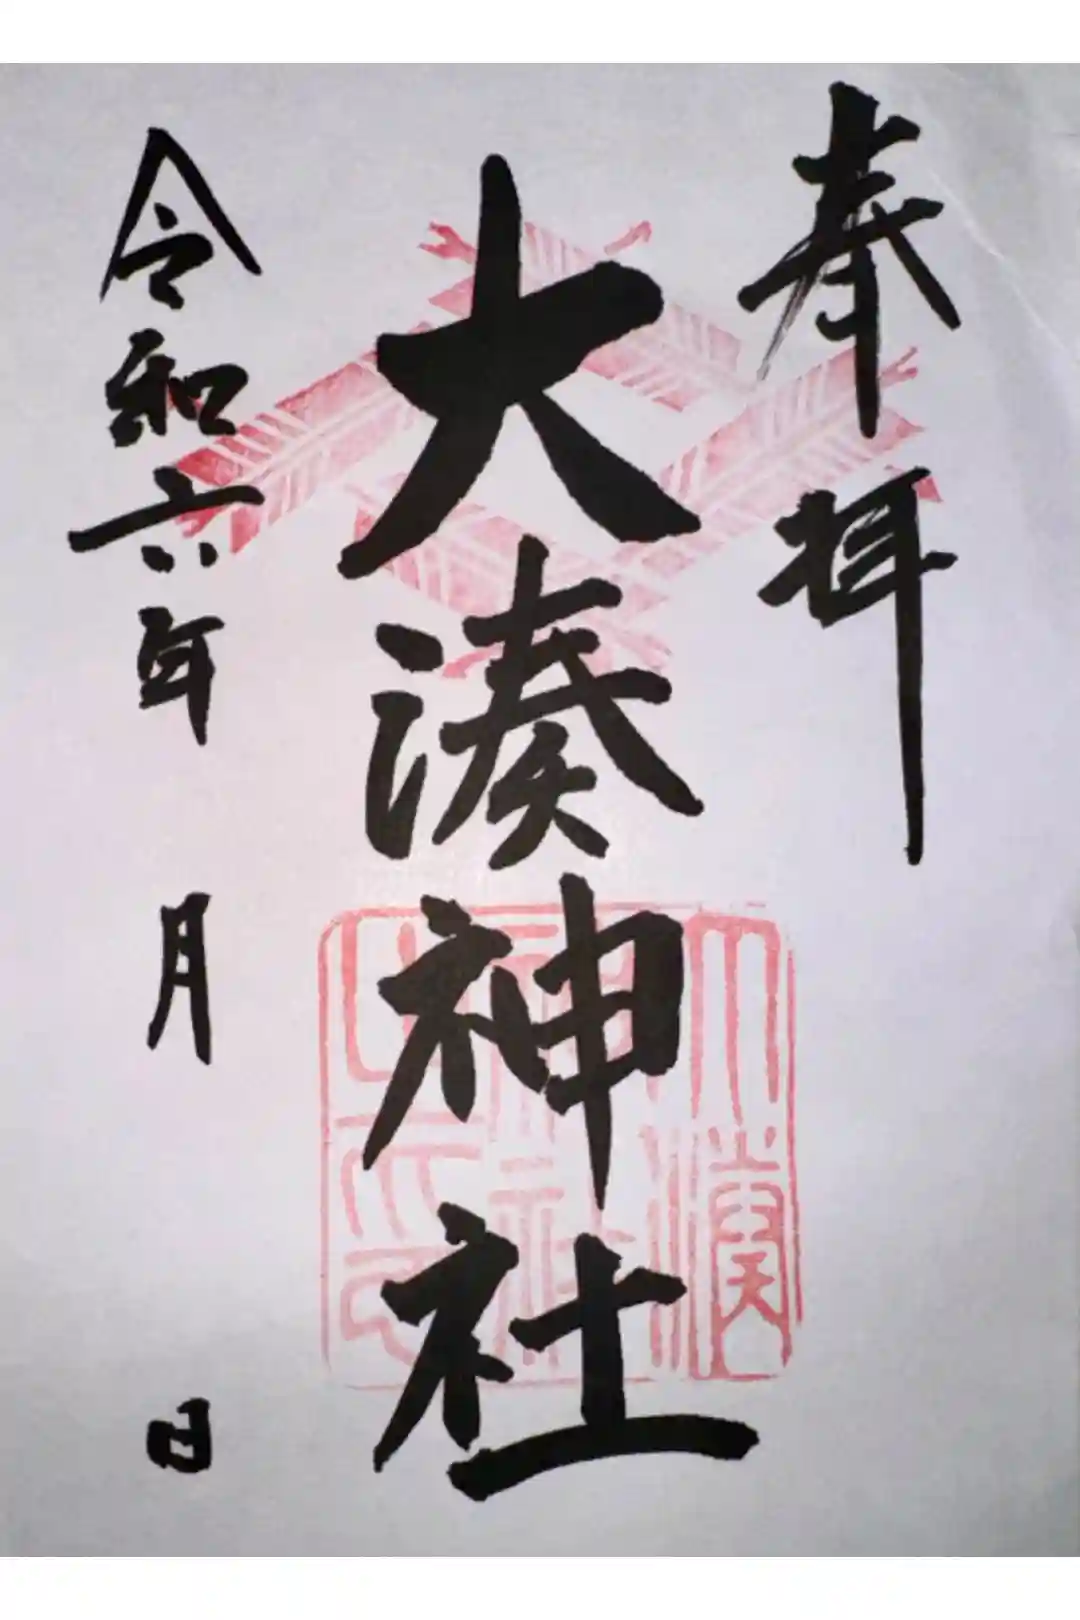 奉拝
大湊神社
大湊神社之印
令和六年 月 日